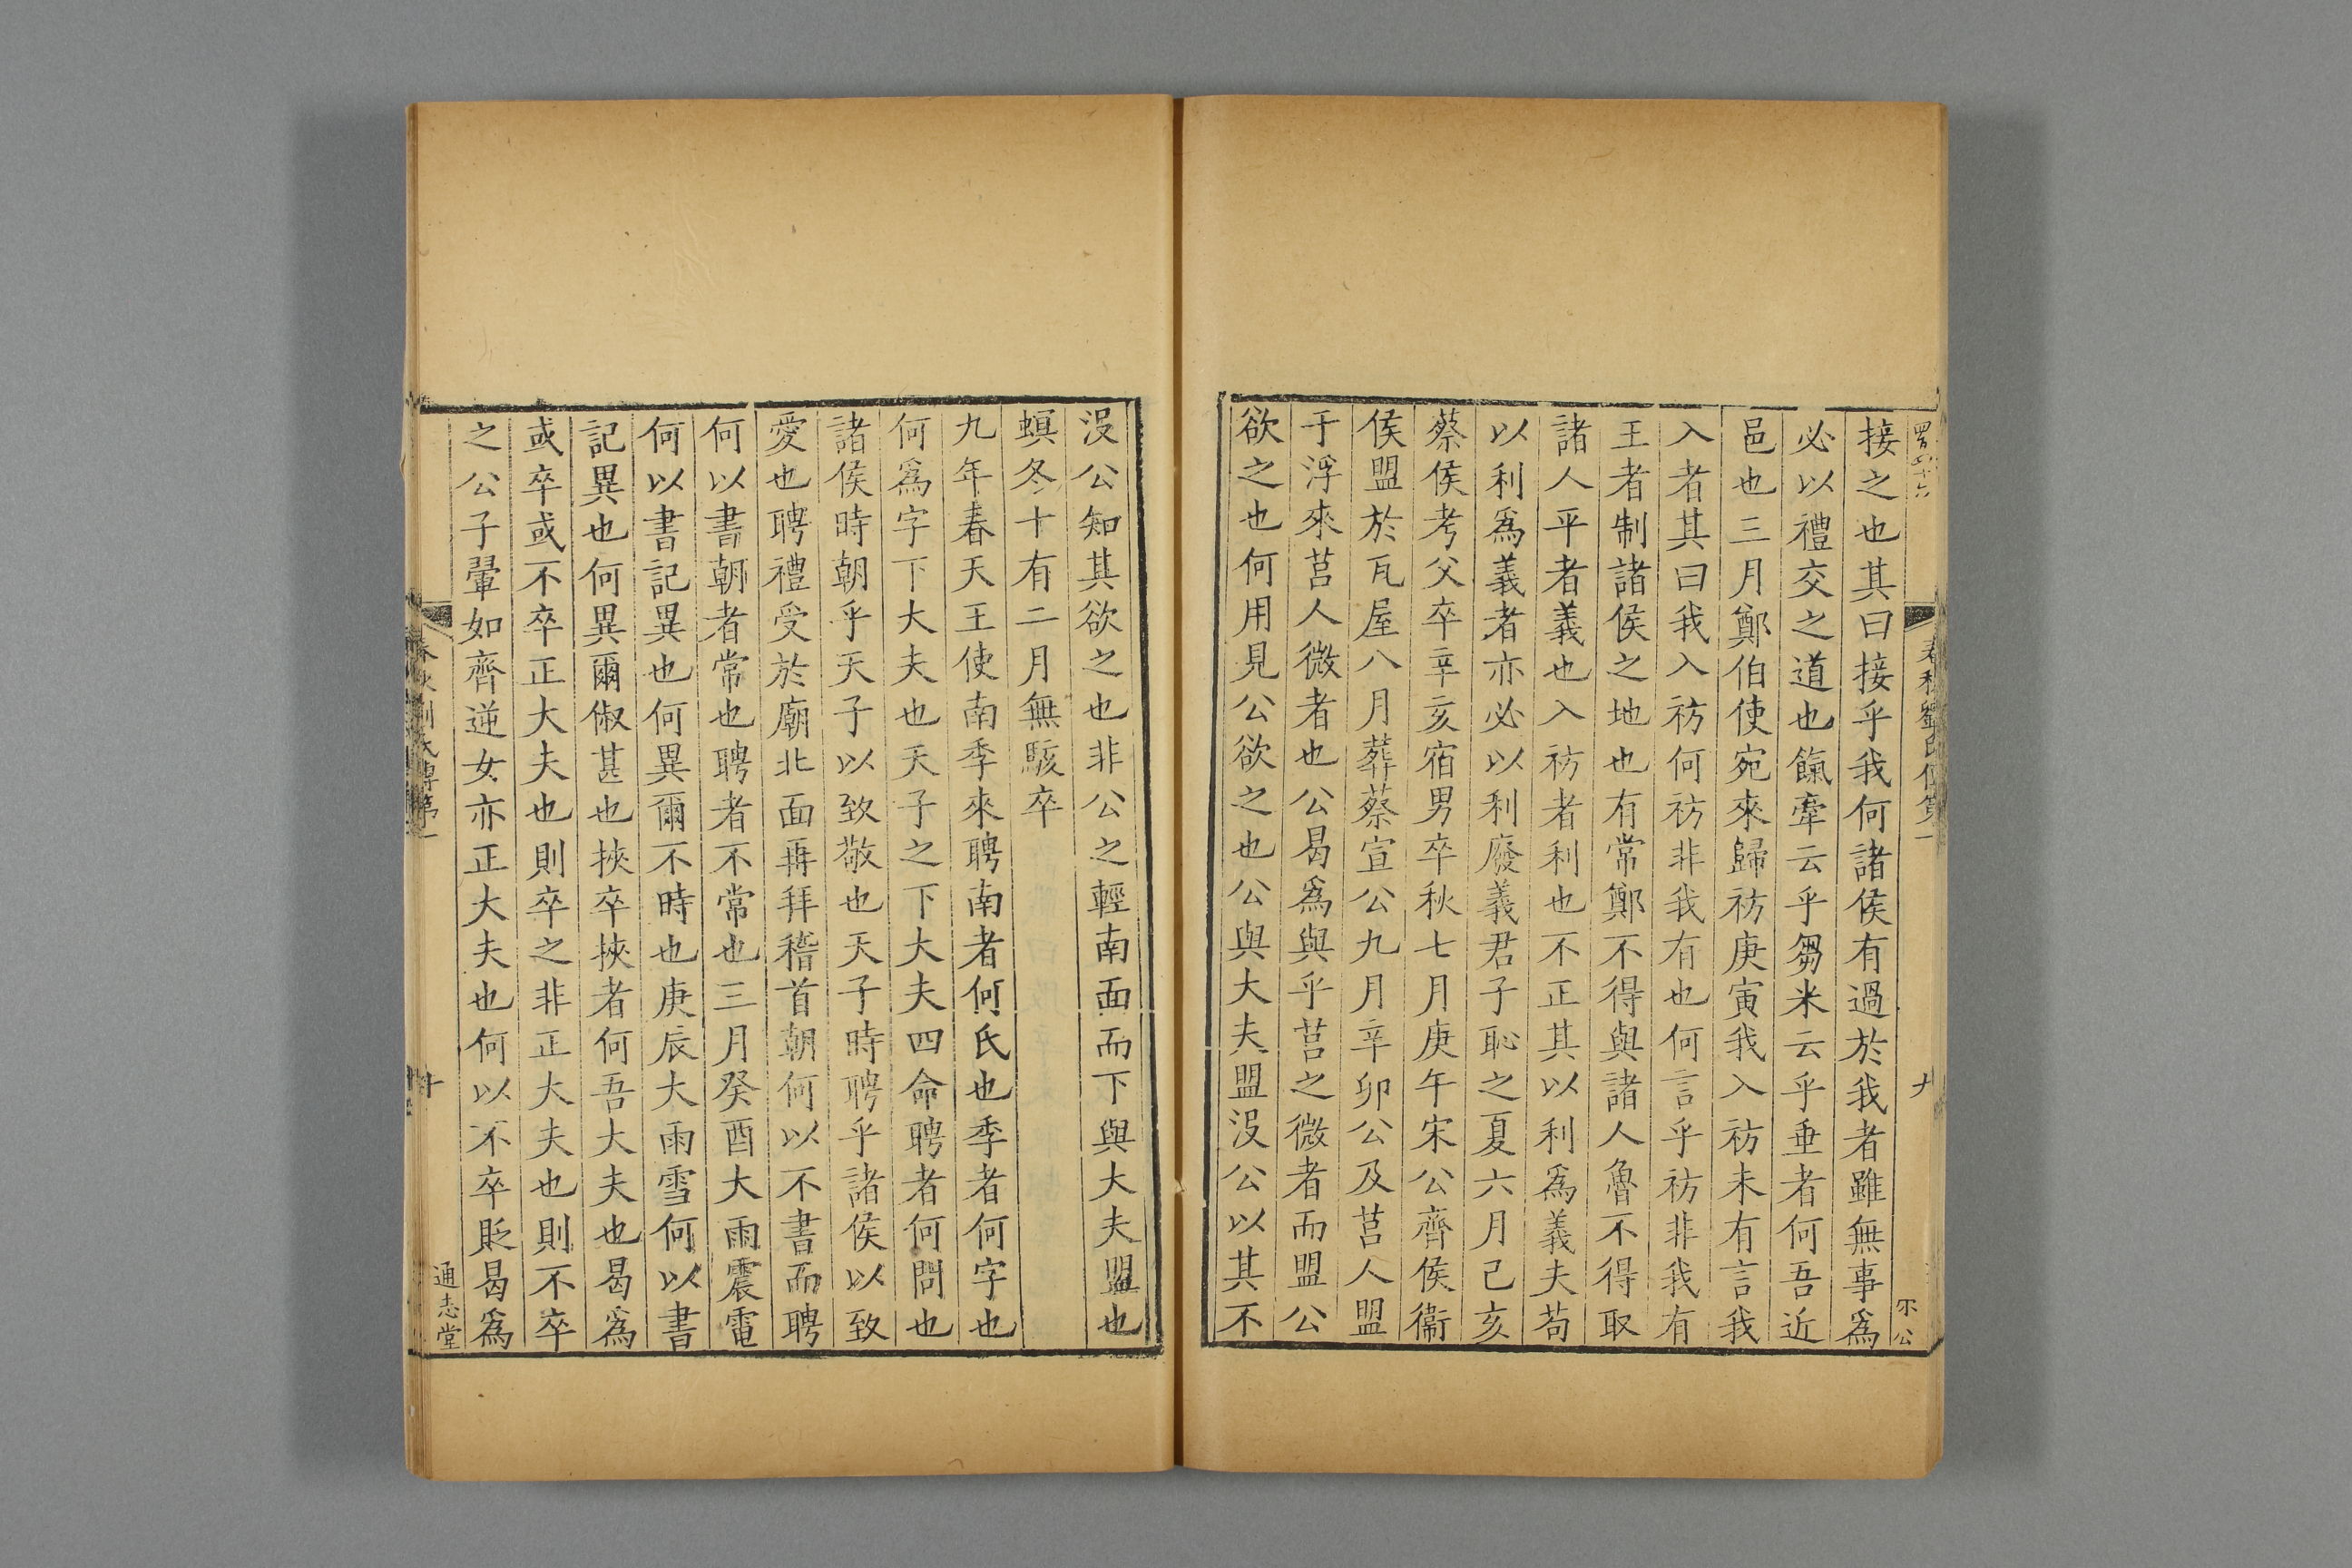 接之也其曰接乎我何諸侯有過於我者雖無事爲
必以禮交之道也餼牽云乎芻米云乎垂者何吾近
邑也三月鄭伯使宛來歸祊庚寅我入祊未有言我
入者其曰我入祊何祊非我有也何言乎祊非我有
王者制諸侯之地也有常鄭不得與諸人魯不得取
諸人平者義也入祊者利也不正其以利爲義夫苟
以利爲義者亦必以利廢義君子恥之夏六月己亥
蔡侯考父卒辛亥宿男卒秋七月庚午宋公齊侯衞
侯盟於瓦屋八月葬蔡宣公九月辛卯公及莒人盟
于浮來莒人微者也公曷爲與乎莒之微者而盟公
欲之也何用見公欲之也公與大夫盟没公以其不
没公知其欲之也非公之輕南面而下與大夫盟也
螟冬十有二月無駭卒
九年春天王使南季來聘南者何氏也季者何字也
何爲字下大夫也天子之下大夫四命聘者何問也
諸侯時朝乎天子以致敬也天子時聘乎諸侯以致
愛也聘禮受於廟北面再拜稽首朝何以不書而聘
何以書朝者常也聘者不常也三月癸酉大雨震電
何以書記異也何異爾不時也庚辰大雨雪何以書
記異也何異爾俶甚也挾卒挾者何吾大夫也曷爲
或卒或不卒正大夫也則卒之非正大夫也則不卒
之公子翬如齊逆女亦正大夫也何以不卒貶曷爲
春秋劉氏傳第一
十
通志堂